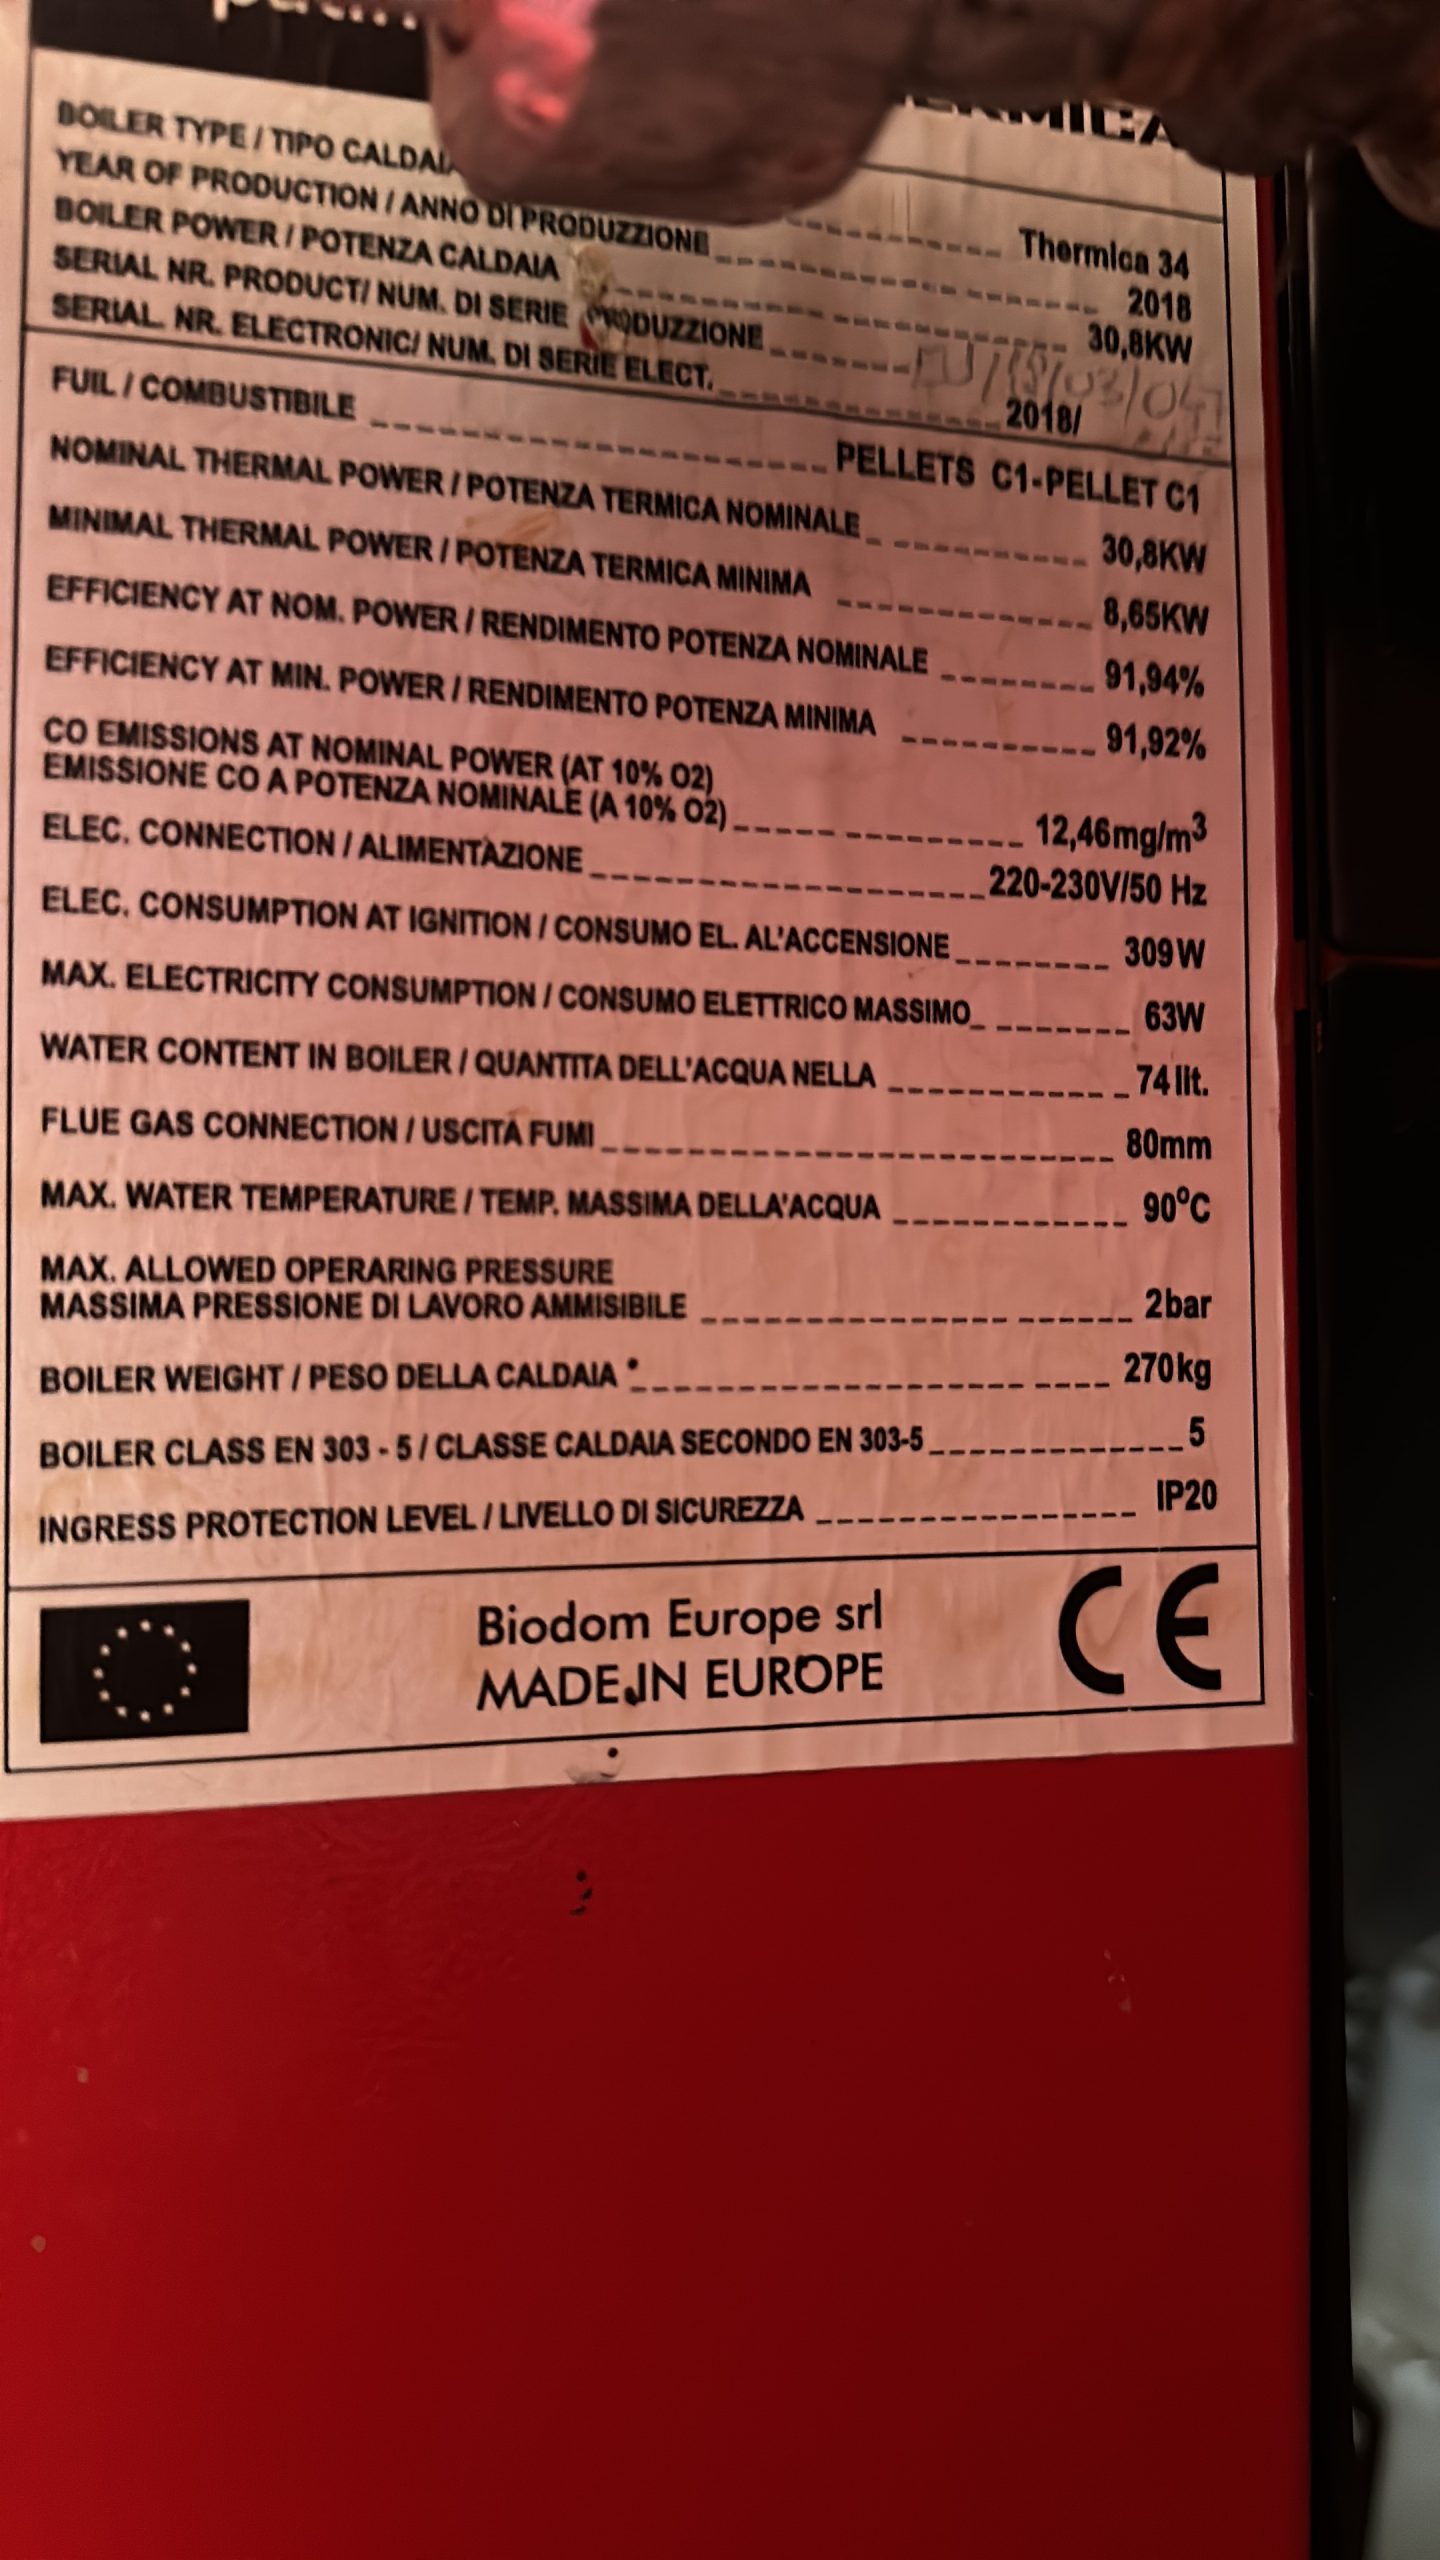 BOILER TYPE / TIPO CALDAIA Thermica 34
YEAR OF PRODUCTION / ANNO DI PRODUZZIONE 2018
BOILER POWER / POTENZA CALDAIA 30,8KW
SERIAL NR. PRODUCT/ NUM. DI SERIE PRODUZZIONE
SERIAL. NR. ELECTRONIC/ NUM. DI SERIE ELECT. 2018/
FUIL / COMBUSTIBILE PELLETS C1-PELLET C1
NOMINAL THERMAL POWER / POTENZA TERMICA NOMINALE 30,8KW
MINIMAL THERMAL POWER / POTENZA TERMICA MINIMA 8,65KW
EFFICIENCY AT NOM. POWER / RENDIMENTO POTENZA NOMINALE 91,94%
EFFICIENCY AT MIN. POWER / RENDIMENTO POTENZA MINIMA 91,92%
CO EMISSIONS AT NOMINAL POWER (AT 10% O2)
EMISSIONE CO A POTENZA NOMINALE (A 10% O2) 12,46mg/m³
ELEC. CONNECTION / ALIMENTAZIONE 220-230V/50 Hz
ELEC. CONSUMPTION AT IGNITION / CONSUMO EL. AL'ACCENSIONE 309W
MAX. ELECTRICITY CONSUMPTION / CONSUMO ELETTRICO MASSIMO 63W
WATER CONTENT IN BOILER / QUANTITA DELL'ACQUA NELLA 74 lit.
FLUE GAS CONNECTION / USCITA FUMI 80mm
MAX. WATER TEMPERATURE / TEMP. MASSIMA DELLA'ACQUA 90°C
MAX. ALLOWED OPERARING PRESSURE
MASSIMA PRESSIONE DI LAVORO AMMISIBILE 2bar
BOILER WEIGHT / PESO DELLA CALDAIA 270kg
BOILER CLASS EN 303 - 5 / CLASSE CALDAIA SECONDO EN 303-5 5
INGRESS PROTECTION LEVEL / LIVELLO DI SICUREZZA IP20
Biodom Europe srl
MADE IN EUROPE
CE